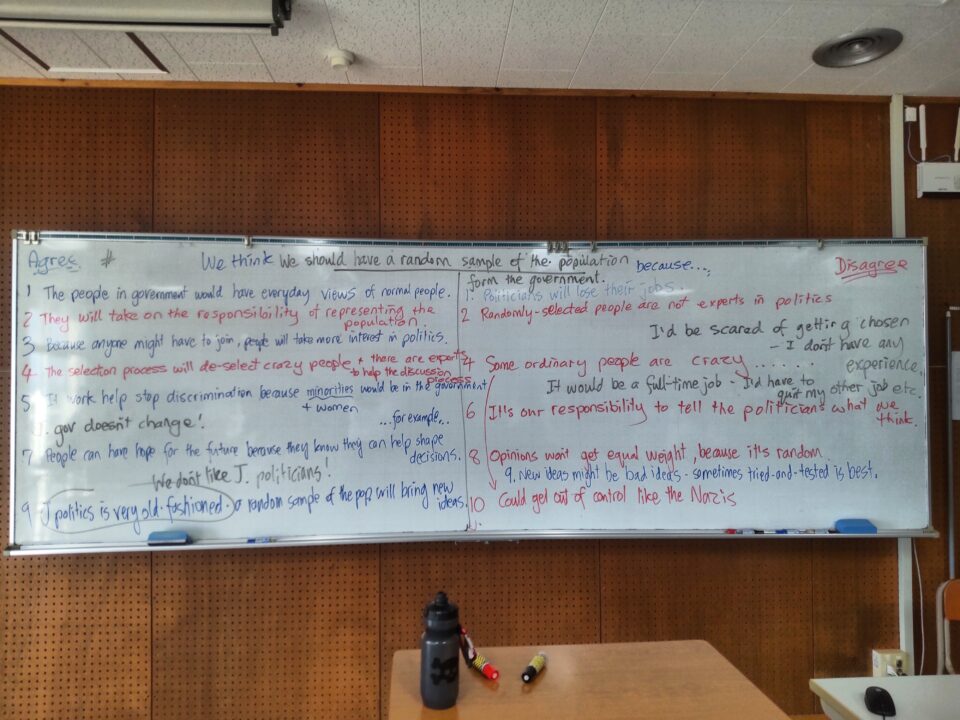 Agree
#
We think we should have a random sample of the population because...
form the government.
Disagree
1 The people in government would have everyday views of normal people.
2 They will take on the responsibility of representing the
population.
3 Because anyone might have to join, people will take more interest in politics.
4 The selection process will de-select crazy people + there are experts
to help the discussion
process
5 It work help stop discrimination because minorities would be in the government
+ women
...for example...
J. gov doesn't change!
7 People can have hope for the future because they know they can help shape
decisions.
We don't like J. politicians!
9 J politics is very old-fashioned - a random sample of the pop. will bring new
ideas.
1. Politicians will lose their jobs.
2 Randomly-selected people are not experts in politics
I'd be scared of getting chosen
- I don't have any
experience.
4 Some ordinary people are crazy........
It would be a full-time job - I'd have to
quit my other job etc.
6 It's our responsibility to tell the politicians what we
think.
8 Opinions won't get equal weight, because it's random
9. New ideas might be bad ideas - sometimes tried-and-tested is best.
10 Could get out of control like the Nazis